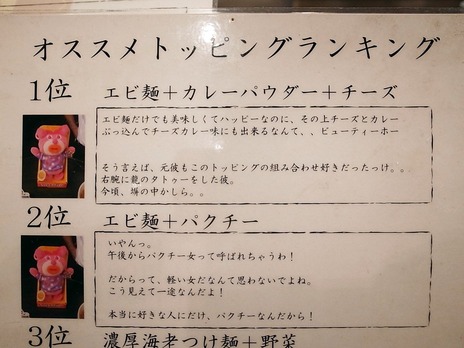 オススメトッピングランキング
1位 エビ麺＋カレーパウダー＋チーズ
エビ麺だけでも美味しくてハッピーなのに、その上チーズとカレー
ぶっ込んでチーズカレー味にも出来るなんて、、ビューティーホー
そう言えば、元彼もこのトッピングの組み合わせ好きだったっけ。。
右腕に龍のタトゥーをした彼。
今頃、塀の中かしら。。
2位 エビ麺＋パクチー
いやんっ。
午後からパクチー女って呼ばれちゃうわ！
だからって、軽い女だなんて思わないでよね。
こう見えて一途なんだよ！
本当に好きな人にだけ、パクチーなんだから！
3位 濃厚海老つけ麺＋野菜